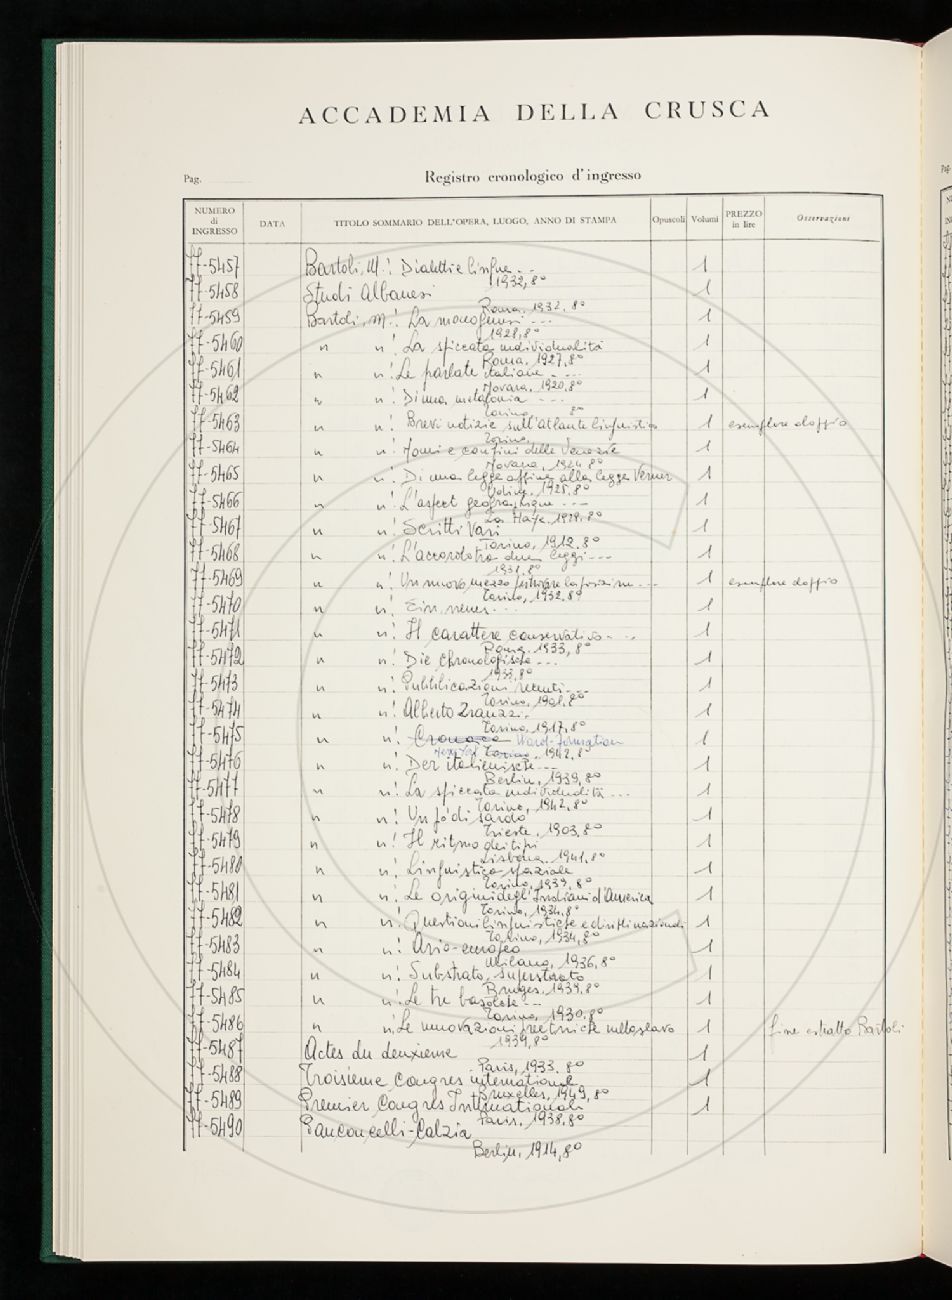 ACCADEMIA DELLA CRUSCA
Pag.
Registro cronologico d'ingresso
NUMERO di INGRESSO DATA TITOLO SOMMARIO DELL'OPERA, LUOGO, ANNO DI STAMPA Opuscoli Volumi PREZZO in lire Osservazioni
77-5457 Bartoli, M.: Dialetti e lingue... 1
1932, 8°
77-5458 Studi Albanesi 1
Roma, 1932, 8°
77-5459 Bartoli, M.: La monogenesi --- 1
1928, 8°
77-5460 " ": La spiccata individualità 1
Roma, 1927, 8°
77-5461 " ": Le parlate italiane --- 1
Novara, 1920, 8°
77-5462 " ": Di una metafonia --- 1
Torino, 8°
77-5463 " ": Brevi notizie sull'atlante linguistico 1 esemplare doppio
Torino,
77-5464 " ": Nomi e confini delle Venezie 1
Novara, 1924, 8°
77-5465 " ": Di una legge affine alla legge Verner 1
Udine, 1925, 8°
77-5466 " ": L'aspect géographique --- 1
La Haye, 1928, 8°
77-5467 " ": Scritti Vari 1
Torino, 1912, 8°
77-5468 " ": L'accordo tra due leggi --- 1
1931, 8°
77-5469 " ": Un nuovo mezzo per --- 1 esemplare doppio
Torino, 1932, 8°
77-5470 " ": Ein neues --- 1
77-5471 " ": Il carattere conservativo --- 1
Roma, 1933, 8°
77-5472 " ": Die chronologische --- 1
1933, 8°
77-5473 " ": Pubblicazioni recenti --- 1
Torino, 1908, 8°
77-5474 " ": Alberto 1
Torino, 1917, 8°
77-5475 " ": Cronaca Word-formation 1
New York Torino, 1942, 8°
77-5476 " ": Der italienische --- 1
Berlin, 1939, 8°
77-5477 " ": La spiccata individualità --- 1
Torino, 1942, 8°
77-5478 " ": Un po' di sardo 1
Trieste, 1903, 8°
77-5479 " ": Il ritmo dei tipi 1
Lisbona, 1941, 8°
77-5480 " ": Linguistica spaziale 1
Torino, 1939, 8°
77-5481 " ": Le origini degl'Indiani d'America 1
Torino, 1934, 8°
77-5482 " ": Questioni linguistiche e 1
Torino, 1934, 8°
77-5483 " ": Ario-europeo 1
Milano, 1936, 8°
77-5484 " ": Substrato, superstrato 1
Bruges, 1939, 8°
77-5485 " ": Le tre basolete --- 1
Torino, 1930, 8°
77-5486 " ": Le innovazioni fonetiche nello slavo 1 fine estratto Bartoli
1939, 8°
77-5487 Actes du deuxième 1
Paris, 1933, 8°
77-5488 Troisième Congres international 1
Bruxelles, 1949, 8°
77-5489 Premier Congres International 1
Paris, 1938, 8°
77-5490 Panconcelli-Calzia
Berlin, 1914, 8°